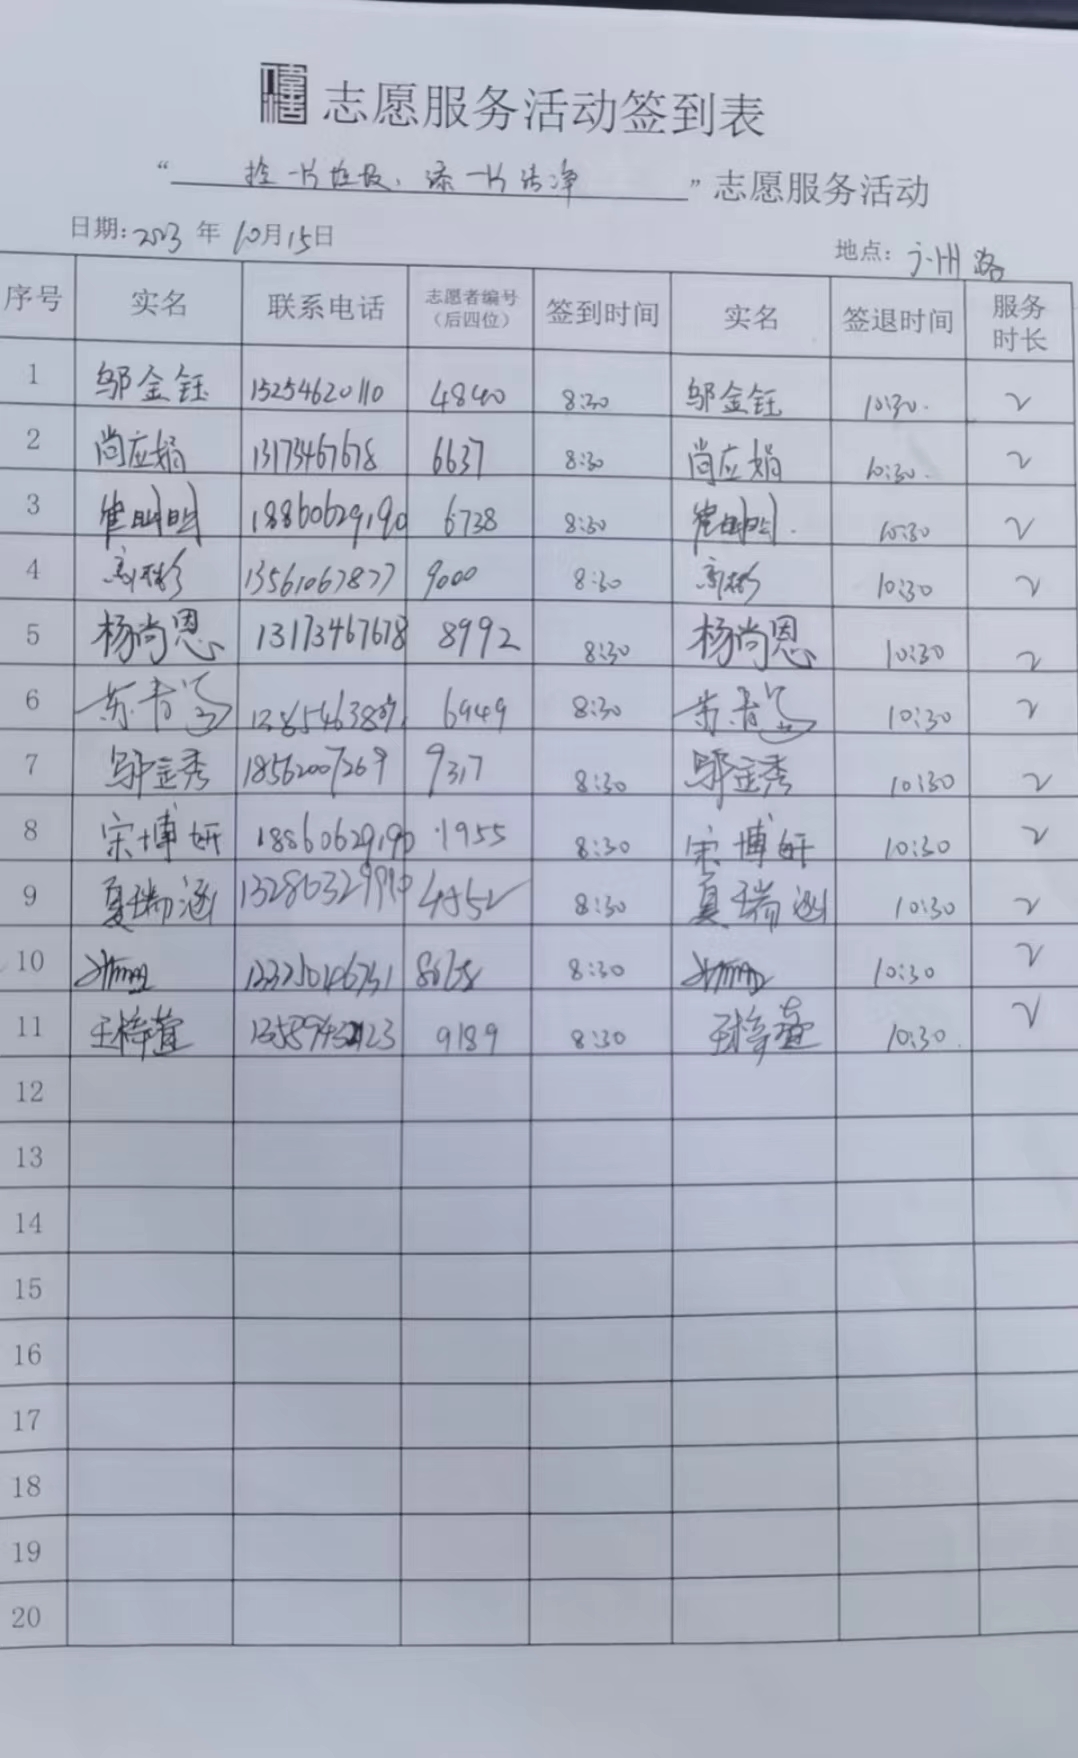 志愿服务活动签到表
“捡一片垃圾，添一片洁净”志愿服务活动
日期: 2023 年 10月15日 地点: 广州路
序号 实名 联系电话 志愿者编号（后四位） 签到时间 实名 签退时间 服务时长
1 邬金钰 15254620110 4840 8:30 邬金钰 10:30. 2
2 尚应娟 13173467678 6637 8:30 尚应娟 10:30. 2
3 崔明明 18860629190 6738 8:30 崔明明. 10:30 2
4 13561067877 9000 8:30 10:30 2
5 杨尚恩 13173467678 8992 8:30 杨尚恩 10:30 2
6 6949 8:30 10:30 2
7 邬金秀 18562007269 9317 8:30 邬金秀 10:30 2
8 宋博妍 18860629190 1955 8:30 宋博妍 10:30 2
9 夏瑞涵 8:30 夏瑞涵 10:30 2
10 8:30 10:30 2
11 王梓萱 9189 8:30 王梓萱 10:30. 2
12
13
14
15
16
17
18
19
20